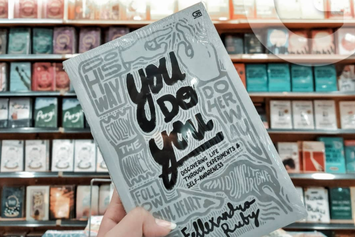 you
DO
you
DISCOVERING LIFE
THROUGH EXPERIMENTS &
SELF-AWARENESS
Fellexandro
Ruby
THE
FOLLOW
OWN HEART